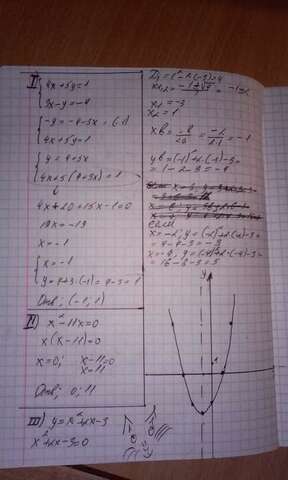 I)
4x+5y=1
3x-y=-4
-y=-4-3x (-1)
4x+5y=1
y=4+3x
4x+5(4+3x)=1
4x+20+15x-1=0
19x=-19
x=-1
x=-1
y=4+3·(-1)=4-3=1
Отв: (-1;1)
II) x²-11x=0
x(x-11)=0
x=0; x-11=0
x=11
Отв: 0;11
III) y=x²+2x-3
x²+2x-3=0
x1=-3
x2=1
xв=-b/2a=-2/2·1=-1
yв=(-1)²+2·(-1)-3=
=1-2-3=-4
если
x=-2, y=(-2)²+2·(-2)-3=
=4-4-3=-3
x=-4, y=(-4)²+2·(-4)-3=
=16-8-3=5
y